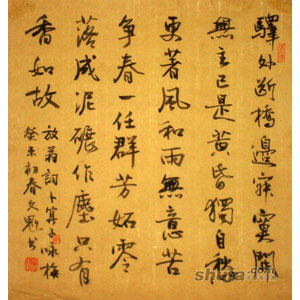 驛外斷橋邊寂寞開
無主已是黃昏獨自愁
更著風和雨無意苦
爭春一任群芳妬零
落成泥碾作塵只有
香如故
放翁詞卜算子咏梅
癸未初春文魁书